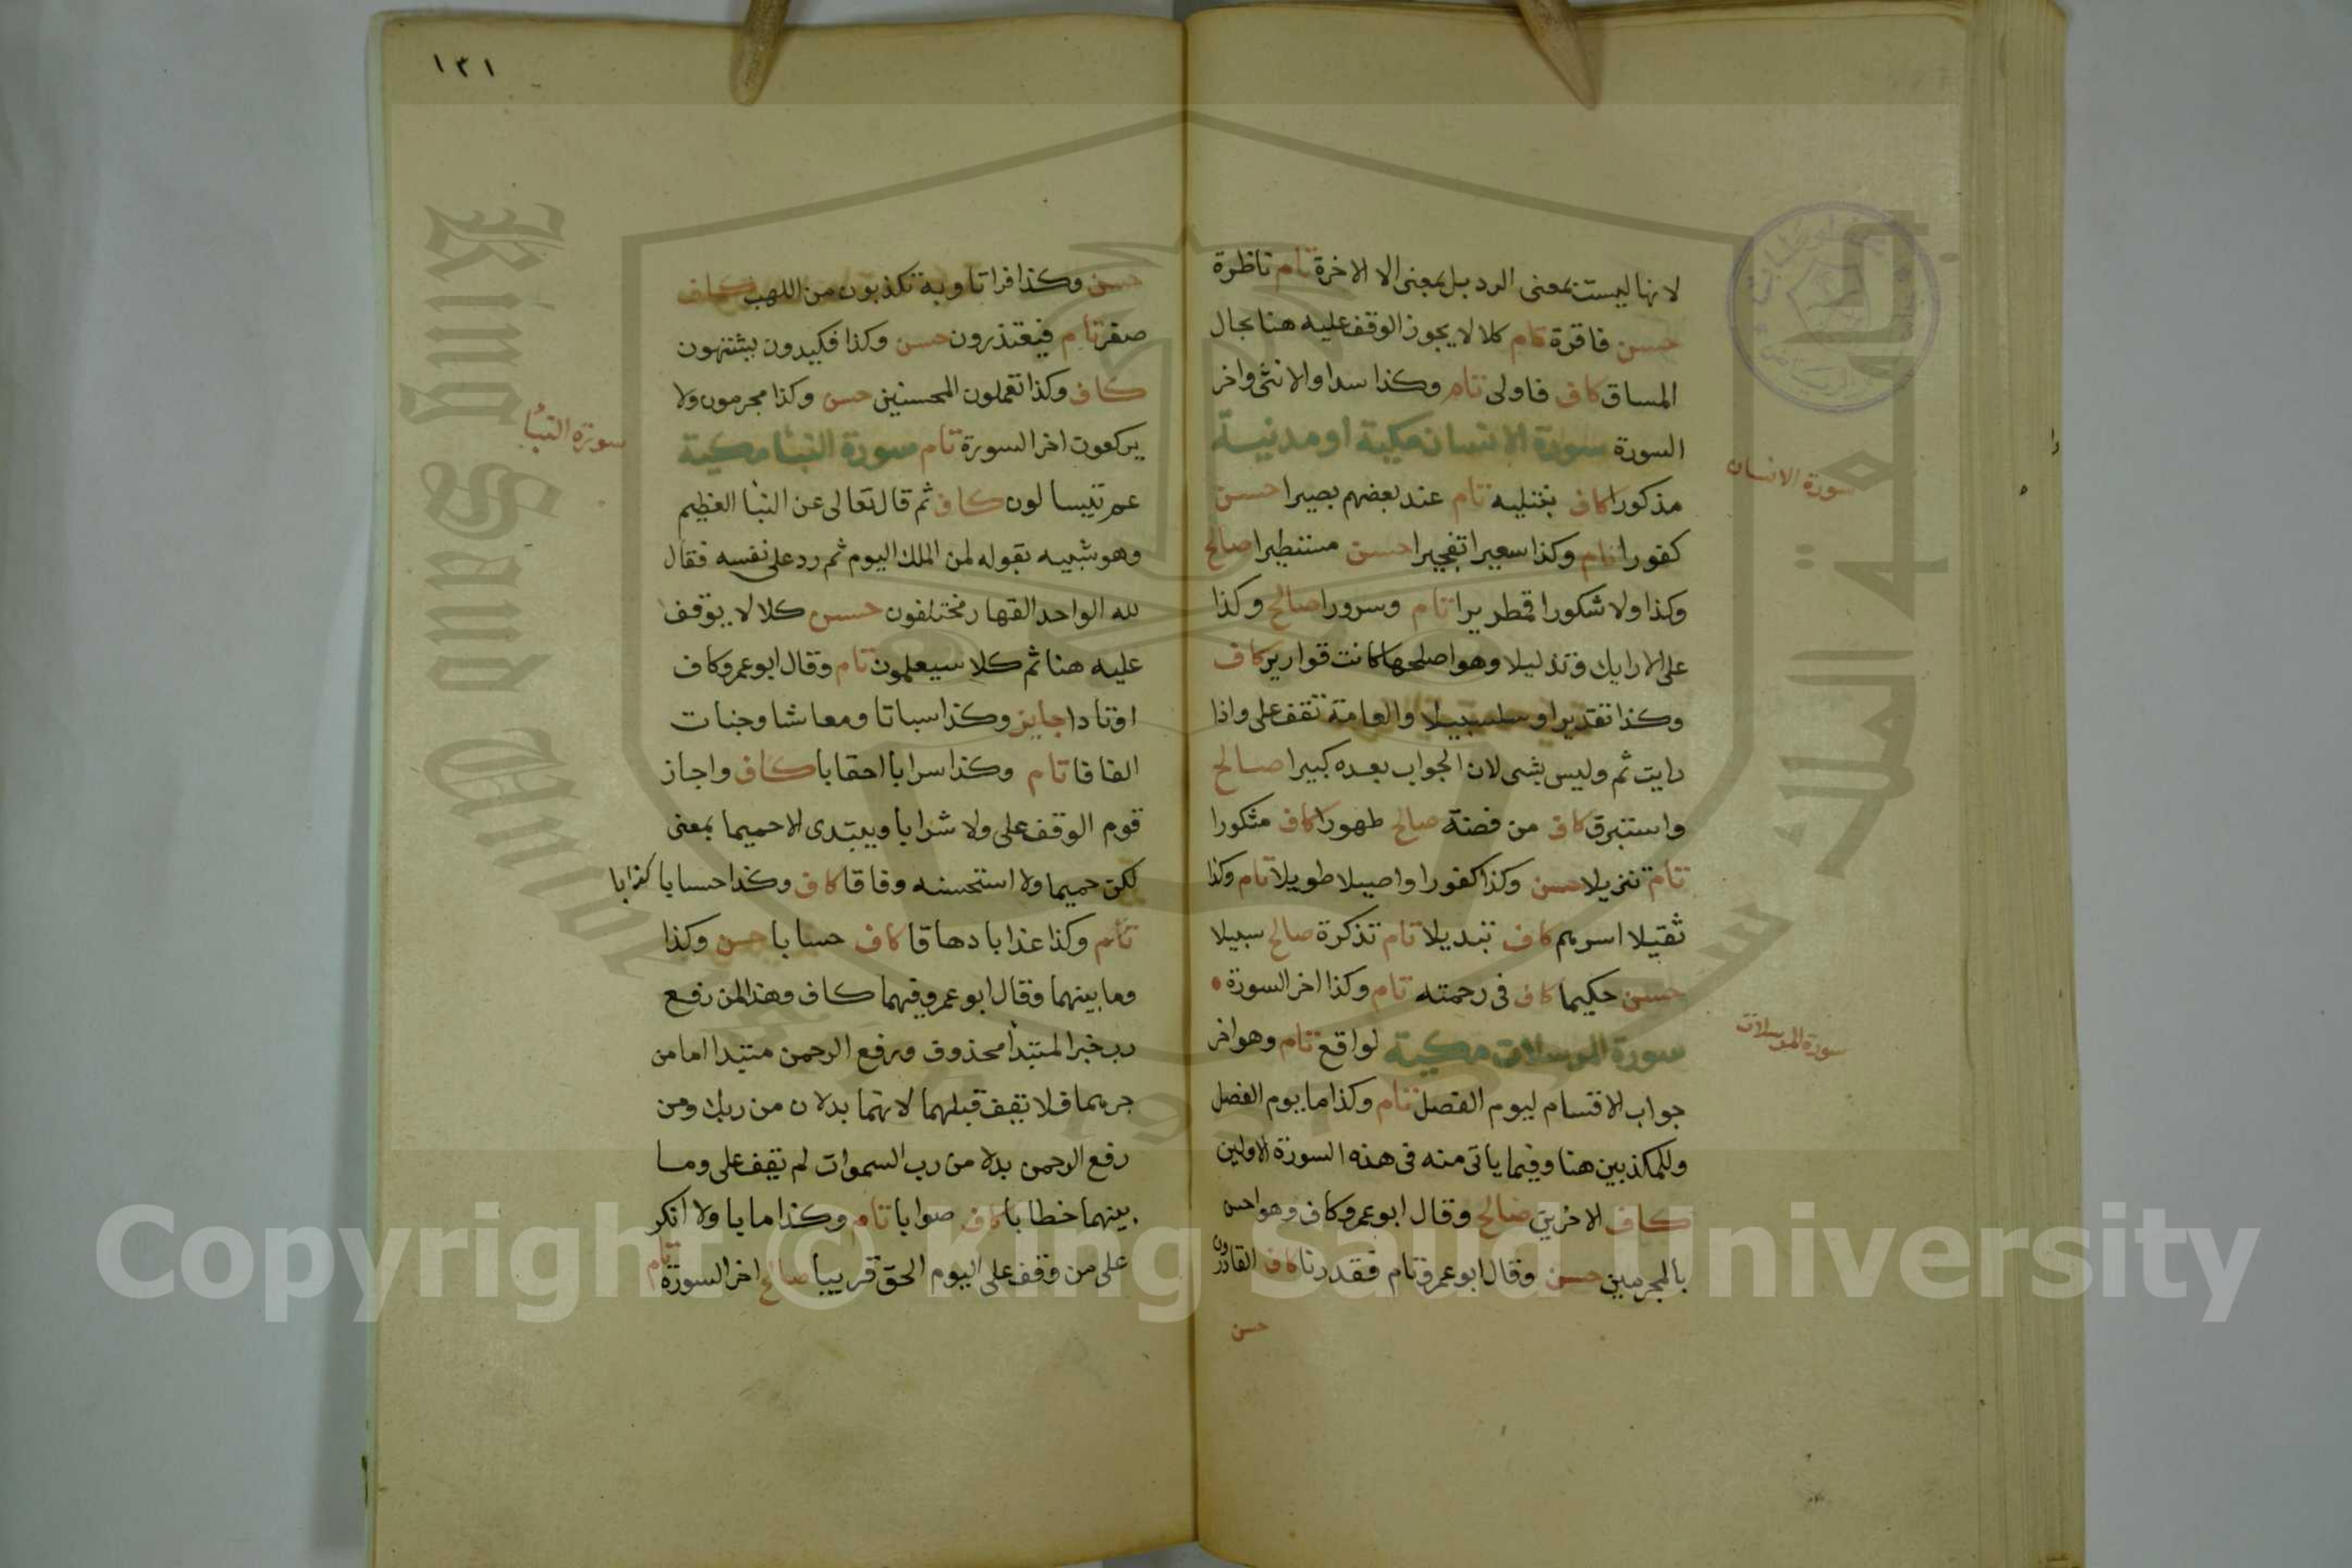 لانها ليست بمعنى الرد بل بمعنى الا الاخرة تام ناظرة
حسن فاقرة تام كلا لا يجوز الوقف عليه هنا بحال
المساق كاف فاولى تام وكذا سدا والانثى واخر
السورة سورة الانسان مكية او مدنية
سورة الانسان
مذكورا كاف نبتليه تام عند بعضهم بصيرا حسن
كفورا تام وكذا سعيرا تفجيرا حسن مستطيرا صالح
وكذا ولا شكورا قمطريرا تام وسرورا صالح وكذا
على الارايك وتذليلا وهو اصلحها كانت قوارير كاف
وكذا تقديرا وسلسبيلا والعامة تقف على واذا
رايت ثم وليس بشى لان الجواب بعده كبيرا صالح
واستبرق كاف من فضة صالح طهورا كاف مشكورا
تام تنزيلا حسن وكذا كفورا واصيلا طويلا تام وكذا
ثقيلا اسرهم كاف تبديلا تام تذكرة صالح سبيلا
حسن حكيما كاف فى رحمته تام وكذا اخر السورة
سورة المرسلات مكية لواقع تام وهو اخر
سورة المرسلات
جواب الاقسام ليوم الفصل تام وكذا ما يوم الفصل
وللمكذبين هنا وفيما ياتى منه فى هذه السورة الاولين
كاف الاخرين صالح وقال ابو عمرو كاف وهو احسن
بالمجرمين حسن وقال ابو عمرو تام فقدرنا كاف القادرون
حسن
١٣١
حسن وكذا فراتا وبه تكذبون من اللهب كاف
صفر تام فيعتذرون حسن وكذا فكيدون يشتهون
كاف وكذا تعملون المحسنين حسن وكذا مجرمون ولا
يركعون اخر السورة تام سورة النبا مكية
سورة النبأ
عم يتساءلون كاف ثم قال تعالى عن النبأ العظيم
وهو شبيه بقوله لمن الملك اليوم ثم رد على نفسه فقال
لله الواحد القهار مختلفون حسن كلا لا يوقف
عليه هنا ثم كلا سيعلمون تام وقال ابو عمرو كاف
اوتادا جايز وكذا سباتا ومعاشا وجنات
الفافا تام وكذا سرابا احقابا كاف واجاز
قوم الوقف على ولا شرابا ويبتدى لا حميما بمعنى
لكن حميما ولا استحسنه وفاقا كاف وكذا حسابا كذابا
تام وكذا عذابا دهاقا كاف حسابا حسن وكذا
وما بينهما وقال ابو عمرو فيهما كاف وهذا لمن رفع
رب خبر المبتدأ محذوف ورفع الرحمن مبتدا اما من
جرهما فلا يقف قبلهما لانهما بدلان من ربك ومن
رفع الرحمن بدلا من رب السموات لم يقف على وما
بينهما خطابا كاف صوابا تام وكذا مابا ولا انكر
على من وقف على اليوم الحق قريبا صالح اخر السورة تام
King Saud University
جامعة الملك سعود
1957
Copyright © King Saud University